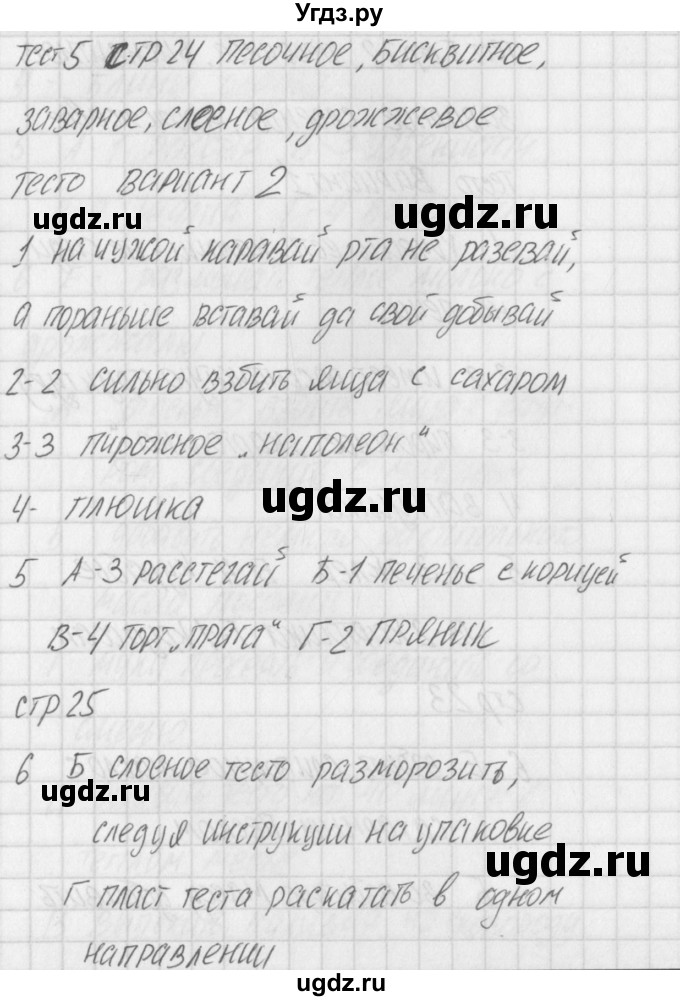 Угдз.ру
тест 5 стр 24 песочное, бисквитное,
заварное, слоеное, дрожжевое
тесто вариант 2
ugdz.ru
ugdz.ru
1 на чужой каравай рта не разевай,
а пораньше вставай да свой добывай
2-2 сильно взбить яйца с сахаром
3-3 пирожное „наполеон“
ugdz.ru
4- плюшка
5 А-3 расстегай Б-1 печенье с корицей
ugdz.ru
В-4 торт „прага“ Г-2 пряник
стр 25
6 Б слоеное тесто разморозить,
ugdz.ru
следуя инструкции на упаковке
ugdz.ru
Г пласт теста раскатать в одном
направлении
ugdz.ru